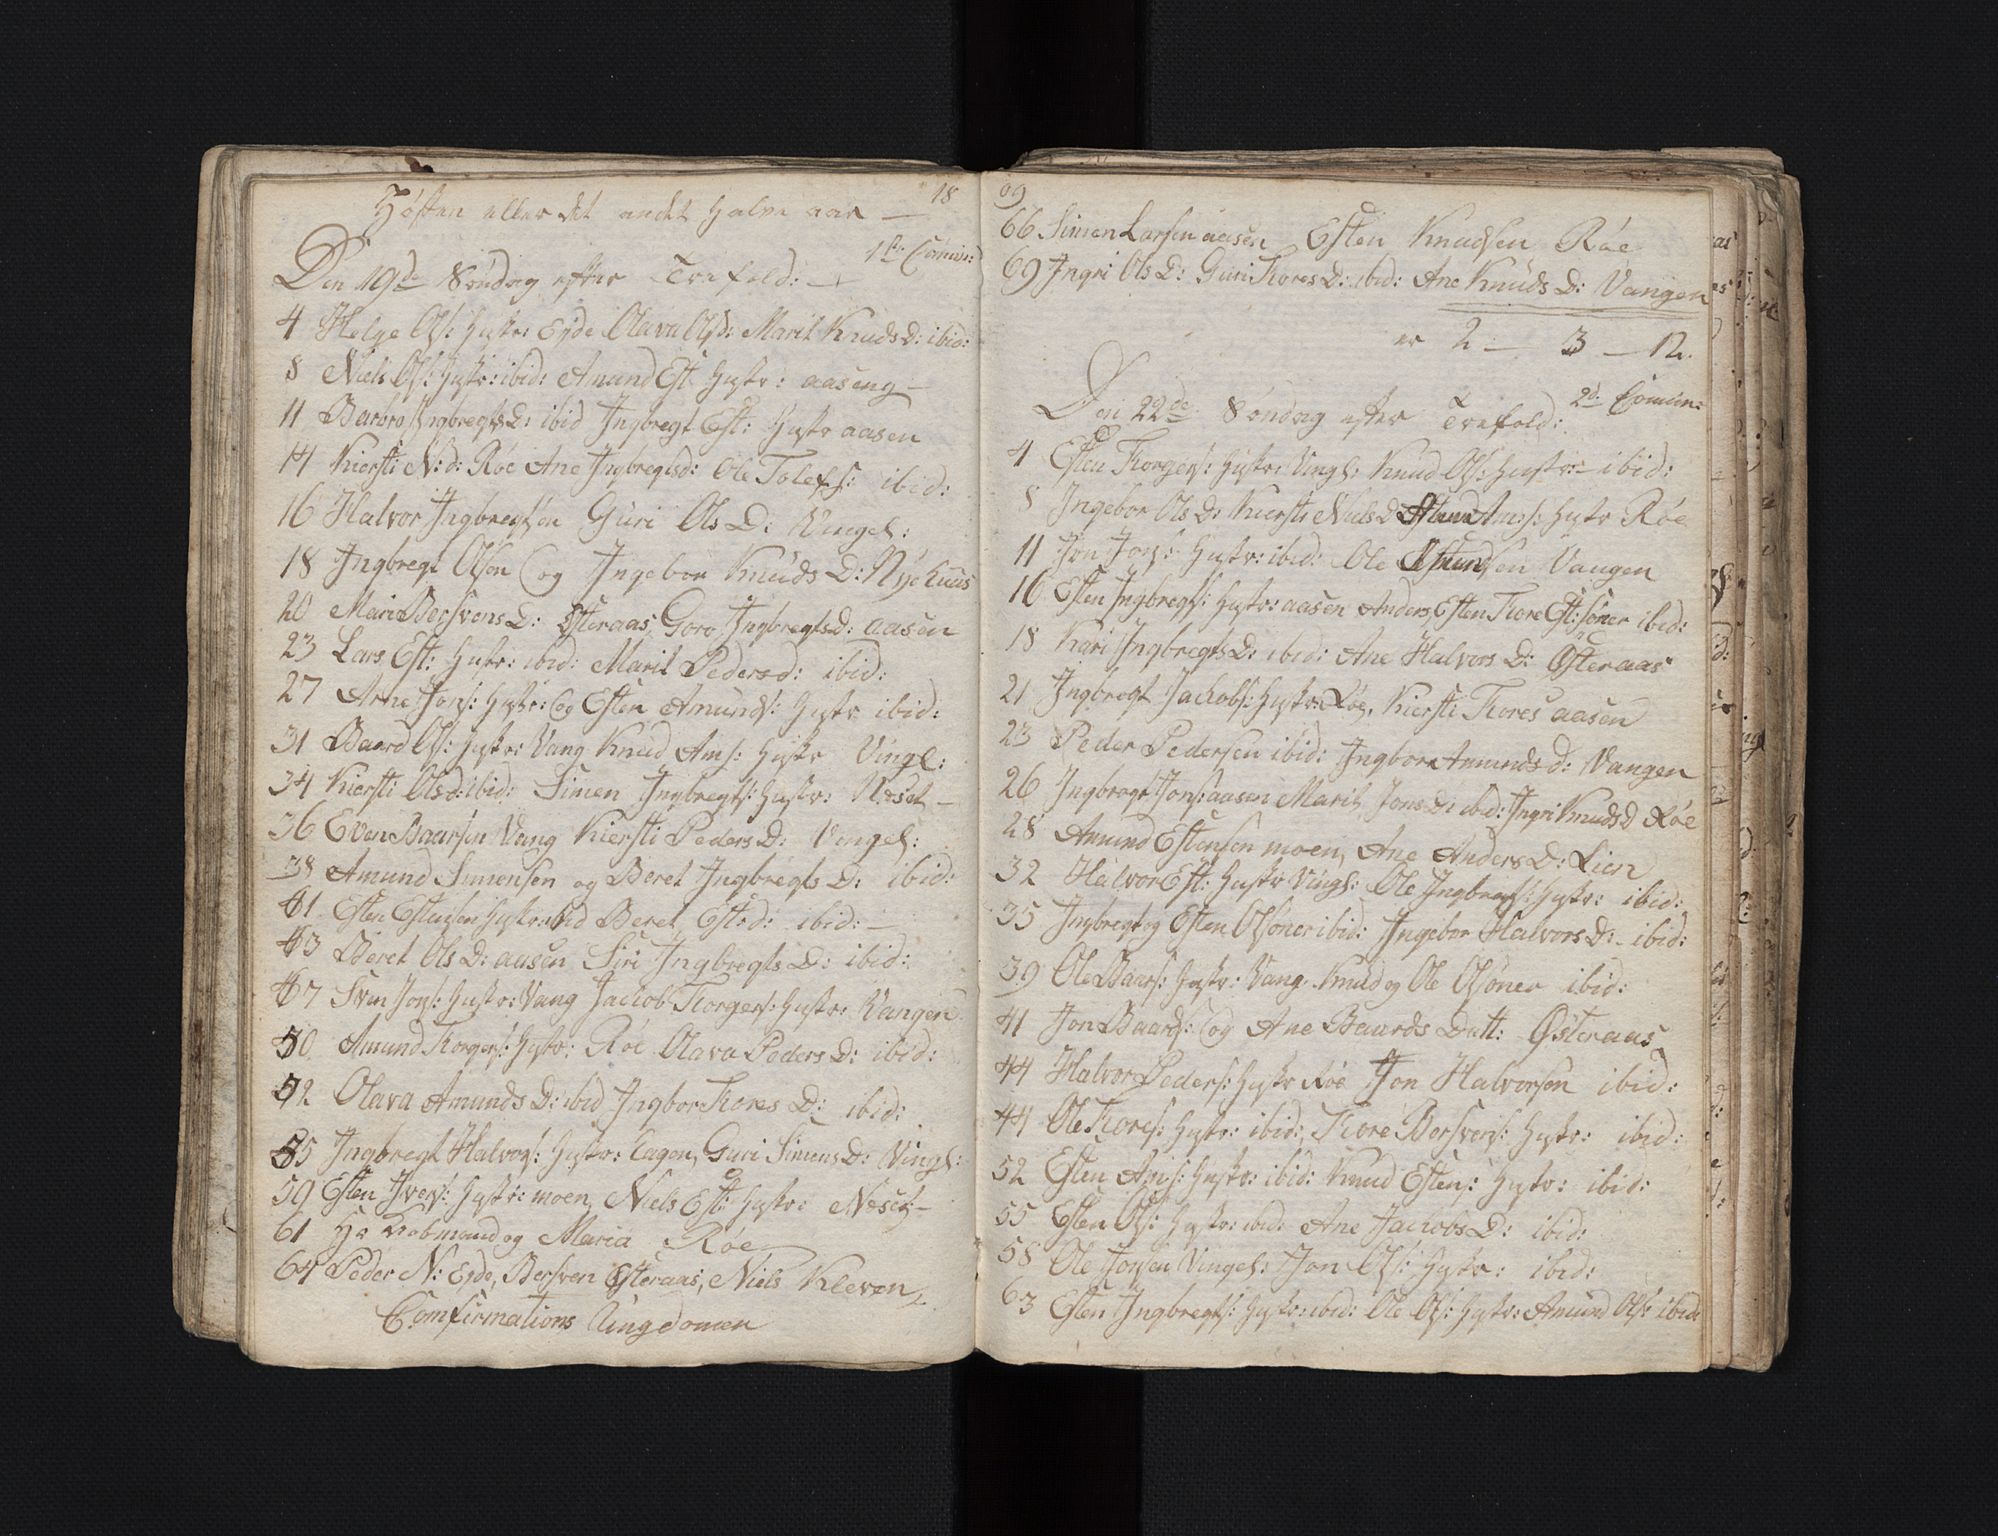 Høsten eller det andet halve aar — 18
1ste Comun:
Den 19de Søndag efter Trefold: —
4 Helge Ols: Hustr: Eyde Olava Olsd: Marit Knuds D: ibid:
8 Niels Ols: Hustr: ibid: Amund Est: Hustr: aaseng —
11 Barbro Jngbregts D: ibid Jngbregt Est: Hustr aasen
14 Kiersti N: d: Røe Ane Jngbregtsd: Ole Tolefs: ibid:
16 Halvor Jngbregtsen Guri Ols D: Vingel:
18 Jngbregt Olsøn og Jngebor Knuds D: Nyehuus
20 Mari Bersvens D: Østeraas, Goro Jngbregts D: aasen
23 Lars Est: Hustr: ibid: Marit Pedersd: ibid:
27 Arne Jons: Hustr: og Esten Amunds: Hustr ibid:
31 Baard Ols: Hustr: Vang Knud Ams: Hustr Vingl:
34 Kiersti Olsd: ibid: Simen Jngbregts: Hustr: Næset —
36 Even Baarsen Vang Kiersti Peders D: Vingel:
38 Amund Simensen og Beret Jngbregts D: ibid:
41 Esten Estensen Hustr: ibid Beret Estsd: ibid: —
43 Beret Ols D: aasen Siri Jngbregts D: ibid:
47 Sven Jons: Hustr: Vang Jacob Torgers: Hustr: Vangen
50 Amund Torgers: Hustr: Røe Olava Peders D: ibid:
52 Olava Amunds D: ibid Jngbor Tores D: ibid:
55 Jngbregt Halvors: Hustr: Eagen, Guri Simens D: Vingl:
59 Esten Ivers: Hustr: moen, Niels Est: Hustr: Næset —
61 Hr og Maria Røe
64 Peder N: Eyde, Bersven Østeraas, Niels Kleven,
Comfirmations Ungdomen
09
66 Simen Larsen aasen Esten Knudsen Røe
69 Jngri Ols D: Guri Tores D: ibid: Ane Knuds D: Vangen
er 2 — 3 — 12.
2d. Comun:
Den 22de Søndag efter Trefold:
4 Esten Torgers: Hustr: Vingl: Knud Ols: Hustr: — ibid:
8 Jngebor Ols D: Kiersti Niels D Ams: Hustr Røe
11 Jon Jons: Hustr: ibid: Ole Amundsen Vangen
16 Esten Jngbregts: Hustr: aasen Anders, Esten Tore Est: søner ibid:
18 Kari Jngbregts D: ibid: Ane Halvors D: Østeraas
21 Jngbregt Jachobs: Hustr: Røe, Kiersti Tores aasen
23 Peder Pedersen ibid: Jngbor Amunds d: Vangen
26 Jngbregt Jons: aasen Marit Jons D: ibid: Jngri Knuds D Røe
28 Amund Estensen moen, Ane Anders D: Lien
32 Halvor Est: Hustr Vingl: Ole Jngbregts: Hustr: ibid:
35 Jngbregt og Esten Olsøner ibid: Jngebor Halvors D: ibid:
39 Ole Baars: Hustr: Vang. Knud og Ole Olsøner ibid:
41 Jon Baards: og Ane Baards Datt: Østeraas
44 Halvor Peders: Hustr Røe Jon Halvorsen ibid:
44 Ole Tores: Hustr: ibid:, Tore Bersvens: Hustr: ibid:
52 Esten Ams: Hustr: ibid: Knud Estens: Hustr: ibid:
55 Esten Ols: Hustr: ibid: Ane Jachobs D: ibid:
58 Ole Jonsen Vingel: Jon Ols: Hustr: ibid:
63 Esten Jngbregts: Hustr: ibid: Ole Ols: Hustr: Amund Ols: ibid